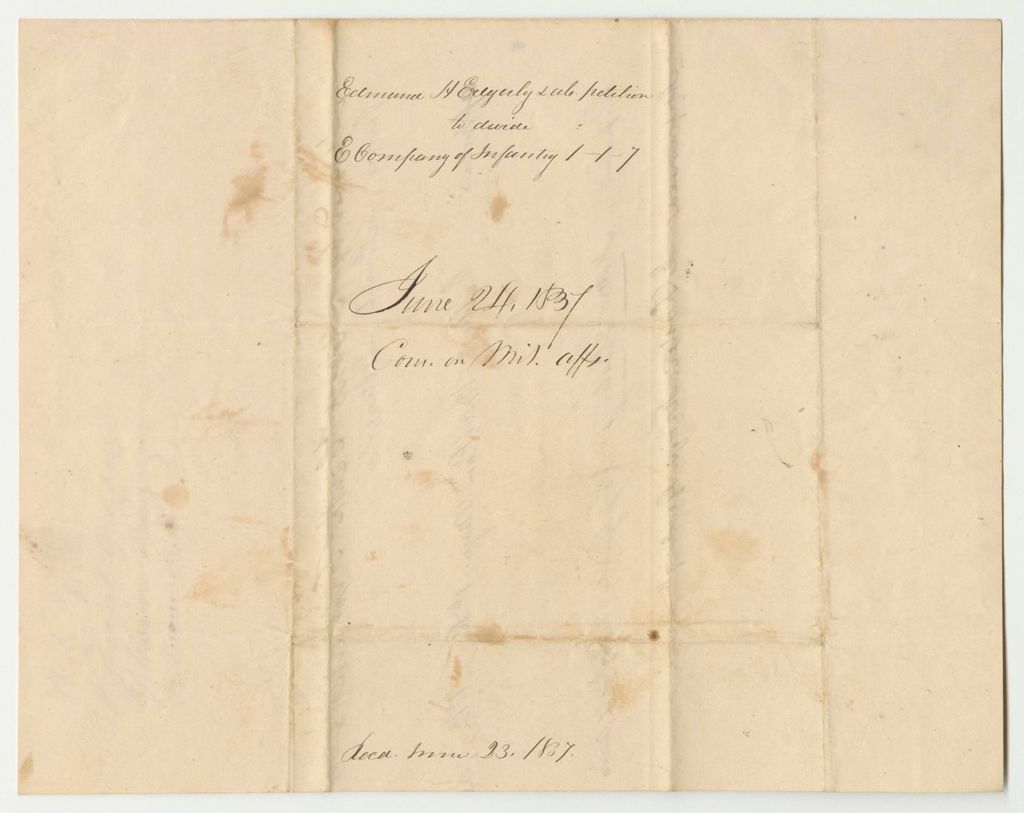 Edmund H Edgerly & als. petition
to divide
E Company of Infantry 1-1-7
June 24, 1837
Com. on Mil. affs.
Recd. June 23. 1837.